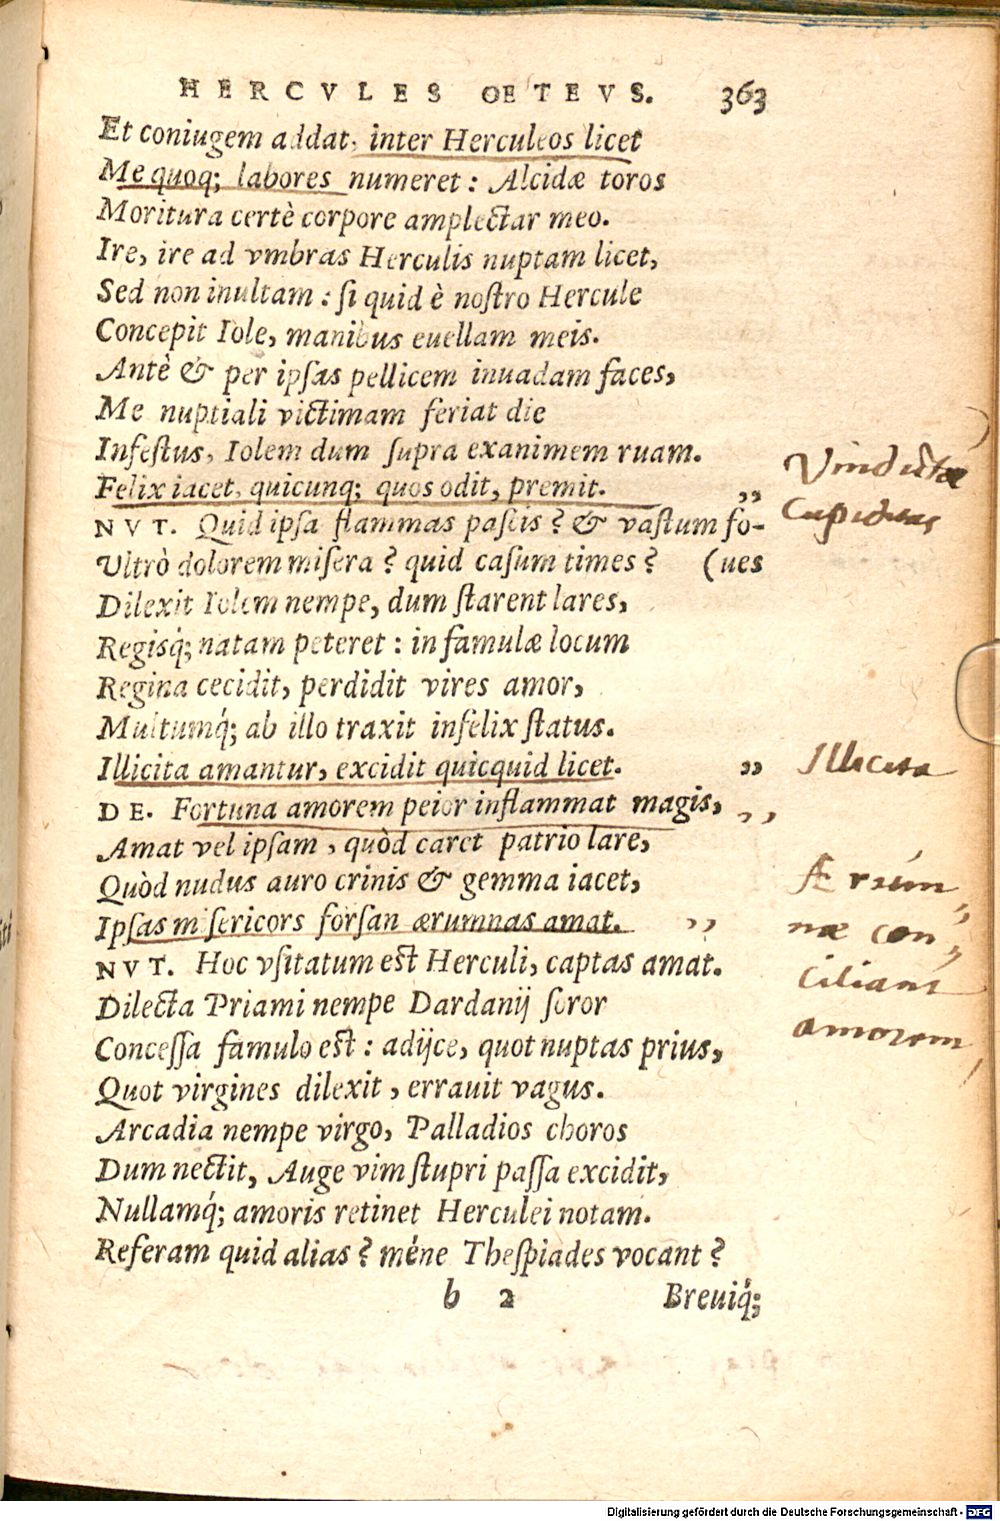 HERCVLES OETEVS. 363
Et coniugem addat, inter Herculeos licet
Me quoq; labores numeret: Alcidæ toros
Moritura certè corpore amplectar meo.
Ire, ire ad vmbras Herculis nuptam licet,
Sed non inultam: si quid è nostro Hercule
Concepit Iole, manibus euellam meis.
Antè & per ipsas pellicem inuadam faces,
Me nuptiali victimam feriat die
Infestus, Iolem dum supra exanimem ruam.
Felix iacet, quicunq; quos odit, premit. ,,
Vindictæ
Cupiditas
NVT. Quid ipsa flammas pascis? & vastum fo-
Vltrò dolorem misera? quid casum times? (ues
Dilexit Iolem nempe, dum starent lares,
Regisq́; natam peteret: in famulæ locum
Regina cecidit, perdidit vires amor,
Multumq́; ab illo traxit infelix status.
Illicita amantur, excidit quicquid licet. ,,
Illicita
DE. Fortuna amorem peior inflammat magis, ,,
Amat vel ipsam, quòd caret patrio lare,
Quòd nudus auro crinis & gemma iacet,
Ipsas misericors forsan ærumnas amat. ,,
Ærum,,
næ con,,
ciliant
amorem
NVT. Hoc vsitatum est Herculi, captas amat.
Dilecta Priami nempe Dardanij soror
Concessa famulo est: adijce, quot nuptas prius,
Quot virgines dilexit, errauit vagus.
Arcadia nempe virgo, Palladios choros
Dum nectit, Auge vim stupri passa excidit,
Nullamq́; amoris retinet Herculei notam.
Referam quid alias? méne Thespiades vocant?
b 2 Breuiq́;
Digitalisierung gefördert durch die Deutsche Forschungsgemeinschaft - DFG